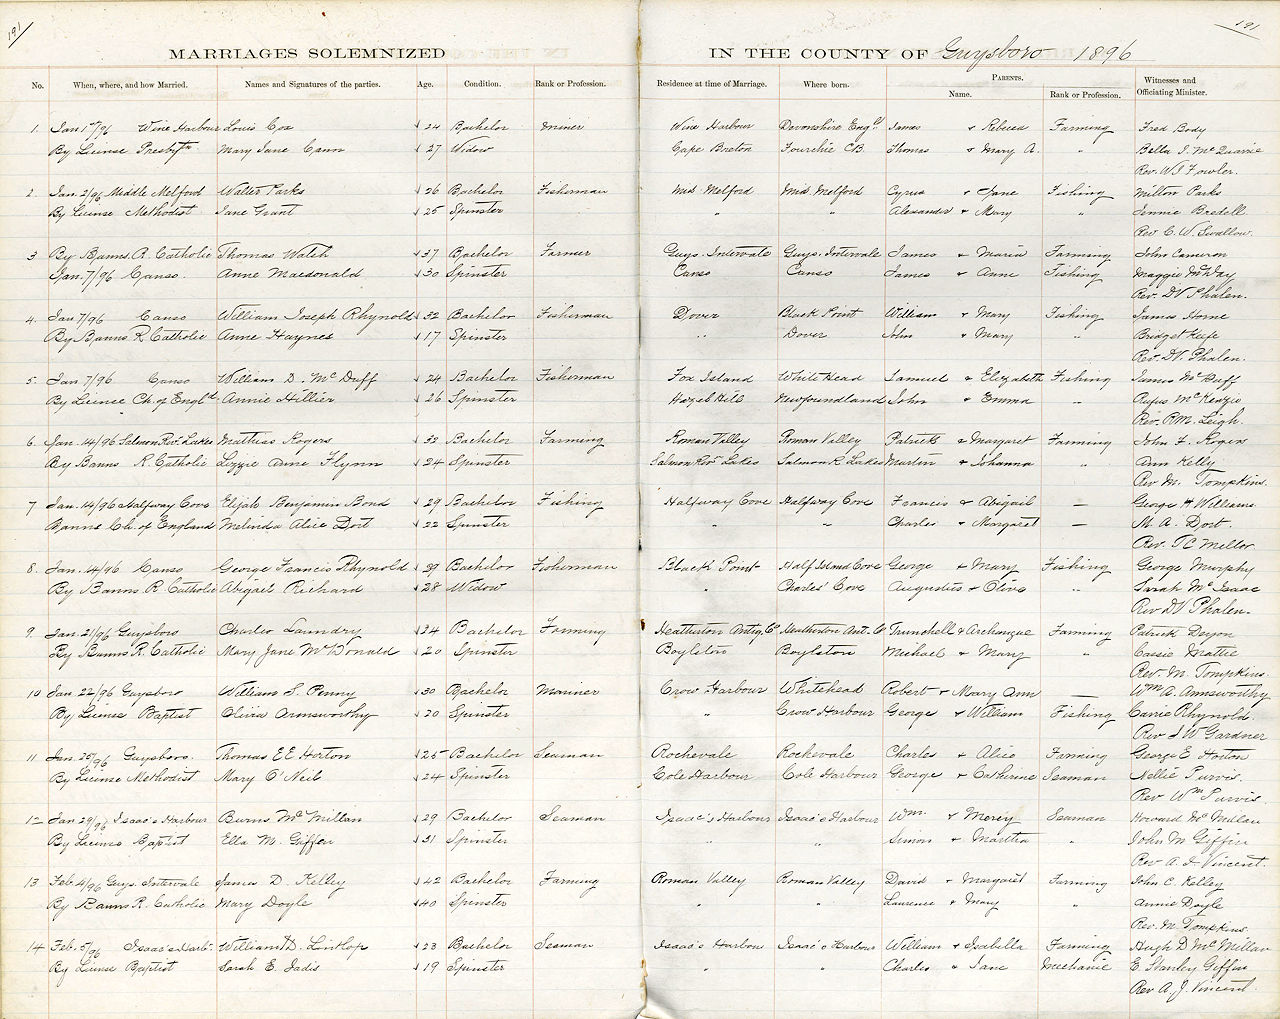 191
191
MARRIAGES SOLEMNIZED IN THE COUNTY OF Guysboro 1896
No. When, where, and how Married. Names and Signatures of the parties. Age. Condition. Rank or Profession. Residence at time of Marriage. Where born. PARENTS. Name. Rank or Profession. Witnesses and Officiating Minister.
1. Jan 1st/96 Wine Harbour Louis Cox 24 Bachelor Miner Wine Harbour Devonshire Engld James & Rebecca Farming Fred Body
By License Presbytn Mary Jane Cann 27 Widow Cape Breton Fourchie C.B. Thomas & Mary A. " Bella J. McQuarrie
Rev. W. J. Fowler.
2. Jan 2/96 Middle Melford Walter Parks 26 Bachelor Fisherman Mid Melford Mid Melford Cyrus & Jane Fishing Milton Parks
By License Methodist Jane Grant 25 Spinster " " Alexander & Mary " Jennie Bedell
Rev C. W. Swallow.
3 By Banns. R. Catholic Thomas Walsh 37 Bachelor Farmer Guys. Intervale Guys. Intervale James & Maria Farming John Cameron
Jan. 7/96 Canso. Anne Macdonald 30 Spinster Canso Canso James & Anne Fishing Maggie McKay
Rev. D V Phalen.
4. Jan 7/96 Canso William Joseph Rhynold 32 Bachelor Fisherman Dover Black Point William & Mary Fishing James Horne
By Banns R Catholic Anne Haynes 17 Spinster " Dover John & Mary " Bridget Keife
Rev. D V. Phalen.
5. Jan 7/96 Canso William D. McDuff 24 Bachelor Fisherman Fox Island White Head Samuel & Elizabeth Fishing James McDuff
By License Ch. of Engld. Annie Hillier 26 Spinster Hazel Hill Newfoundland John & Emma " Rufus McKenzie
Rev. R M. Leigh.
6. Jan. 14/96 Salmon Rivr. Lakes Mathias Rogers 32 Bachelor Farming Roman Valley Roman Valley Patrick & Margaret Farming John F. Rogers
By Banns R. Catholic Lizzie Anne Flynn 24 Spinster Salmon Rivr Lakes Salmon R Lakes Martin & Johanna " Ann Kelly
Rev M. Tompkins.
7 Jan. 14/96 Halfway Cove Elijah Benjamin Bond 29 Bachelor Fishing Halfway Cove Halfway Cove Francis & Abigail — George H Williams
Banns Ch. of England Melinda Alice Dort 22 Spinster " " Charles & Margaret — M. A. Dort.
Rev. T C Mellor
8. Jan. 14/96 Canso George Francis Rhynold 39 Bachelor Fisherman Black Point Half Island Cove George & Mary Fishing George Murphy
By Banns R Catholic Abigail Richard 28 Widow " Charles' Cove Augustus & Olive " Sarah McIsaac
Rev D V Phalen.
9. Jan. 21/96 Guysboro Charles Laundry 34 Bachelor Farming Heatherton Antig. Co Heatherton Ant. Co & Archangue Farming Patrick
By Banns R. Catholic Mary Jane McDonald 20 Spinster Boylston Boylston Michael & Mary " Cassie Mattie
Rev. M. Tompkins
10 Jan 22/96 Guysboro William S. Penny 30 Bachelor Mariner Crow Harbour Whitehead Robert & Mary Ann — Wm A. Armsworthy
By License Baptist Olivia Armsworthy 20 Spinster " Crow Harbour George & William Fishing Carrie Rhynold.
Rev I W Gardner
11. Jan. 25/96 Guysboro. Thomas E E Horton 25 Bachelor Seaman Rockevale Rockevale Charles & Alice Farming George E Horton
By License Methodist Mary O'Neil 24 Spinster Cole Harbour Cole Harbour George & Catherine Seaman Nellie Purvis.
Rev Wm Purvis.
12 Jan 29/96 Isaac's Harbour Burns McMillan 29 Bachelor Seaman Isaac's Harbour Isaac's Harbour Wm. & Mercy Seaman Howard McMillan
By License Baptist Ella M. Giffen 31 Spinster " " Simon & Martha " John M Giffin
Rev A. J. Vincent.
13 Feb. 4/96 Guys. Intervale James D. Kelley 42 Bachelor Farming Roman Valley Roman Valley David & Margaret Farming John C. Kelley
By Banns R. Catholic Mary Doyle 40 Spinster " " Laurence & Mary " Annie Doyle
Rev. M Tompkins.
14 Feb. 5/96 Isaac's Harbr. William D. Linthop 23 Bachelor Seaman Isaac's Harbour Isaac's Harbour William & Isabella Farming Hugh D McMillan
By License Baptist Sarah E. Jadis 19 Spinster " " Charles & Jane Mechanic E. Stanley Giffin
Rev A. J. Vincent.